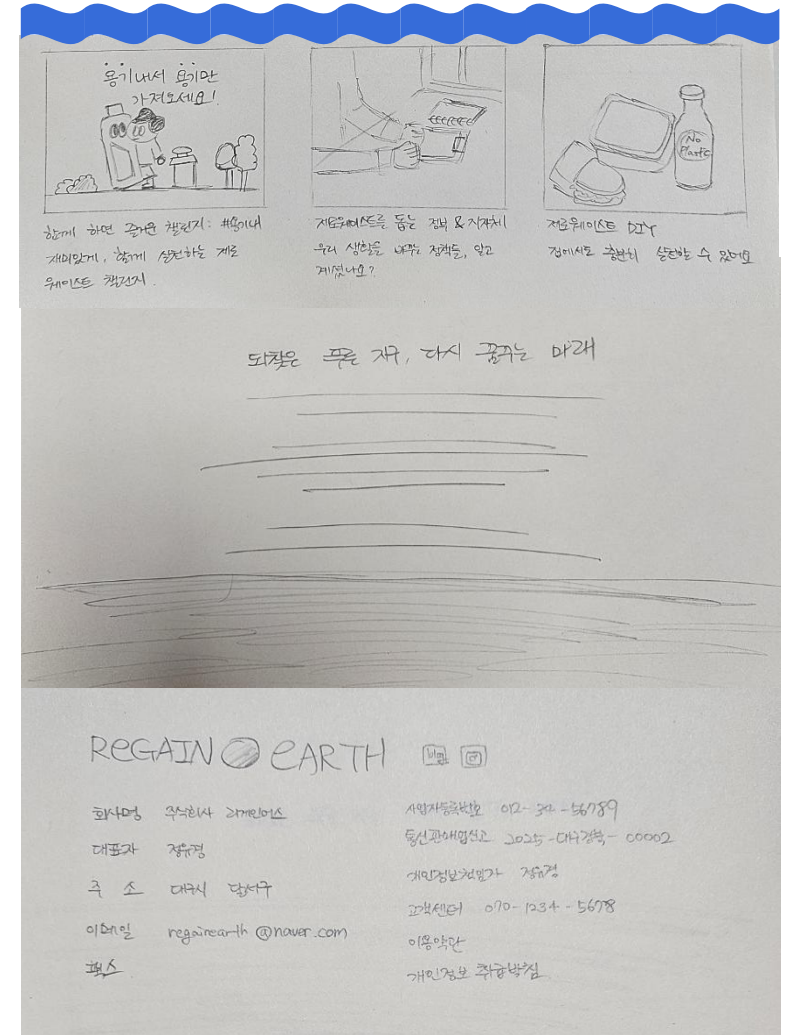 용기내서 용기만
가져오세요!
함께 하면 즐거운 챌린지: #용기내
재미있게, 함께 실천하는 제로
웨이스트 챌린지.
제로웨이스트를 돕는 정부 & 지자체
우리 생활을 바꾸는 정책들, 알고
계셨나요?
No
Plastic
제로웨이스트 DIY
집에서도 충분히 실천할 수 있어요
되찾은 푸른 지구, 다시 꿈꾸는 미래
REGAIN EARTH
blog
회사명 주식회사 리게인어스
대표자 정유경
주 소 대구시 달서구
이메일 regainearth@naver.com
팩스
사업자등록번호 012-34-56789
통신판매업신고 2025-대구경북-00002
개인정보책임자 정유경
고객센터 070-1234-5678
이용약관
개인정보 취급방침